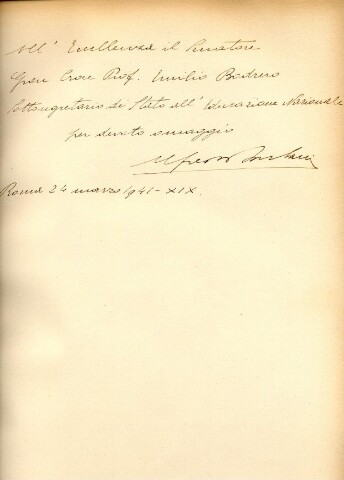 All' Eccellenza il Senatore
Gran Croce Prof. Emilio Bodrero
Sottosegretario di Stato all' Educazione Nazionale
per devoto omaggio
Alfredo
Roma 24 marzo 1941-XIX.